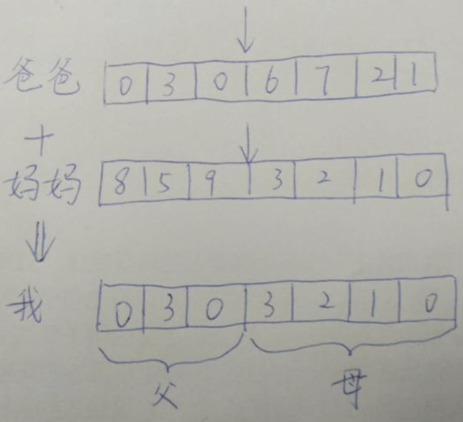 爸爸 0 3 0 6 7 2 1
+
妈妈 8 5 9 3 2 1 0
我 0 3 0 3 2 1 0
父 母